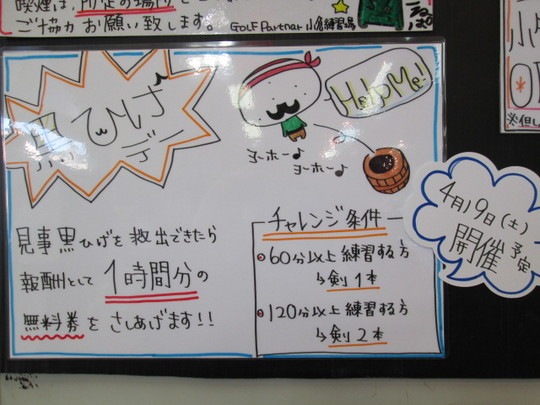 喫煙は、所定の場所
ご協力お願い致します。
GOLF Partner 小倉練習場
黒ひげ
デー
Help Me!
ヨーホー♪
ヨーホー♪
見事黒ひげを救出できたら
報酬として1時間分の
無料券をさしあげます!!
チャレンジ条件
60分以上練習する方
↳剣1本
120分以上練習する方
↳剣2本
4月19日(土)
開催予定